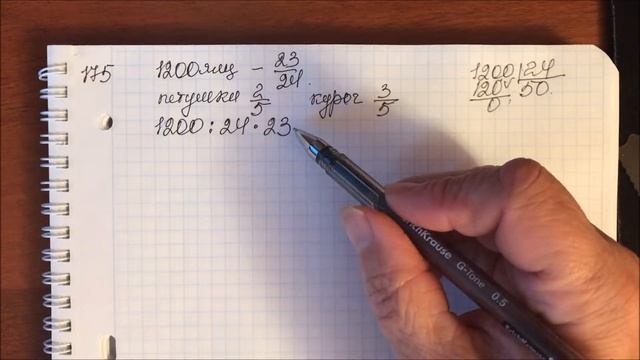 175
1200 яиц – 23/24.
петушки 2/5 куроч 3/5
1200 : 24 · 23
1200 | 24
120 50.
0
ErichKrause G-Tone 0.5